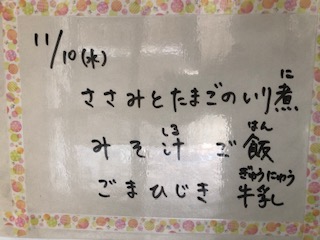 11/10(水)
ささみとたまごのいり煮
に
みそ汁 ご飯
しる はん
ごまひじき 牛乳
ぎゅうにゅう